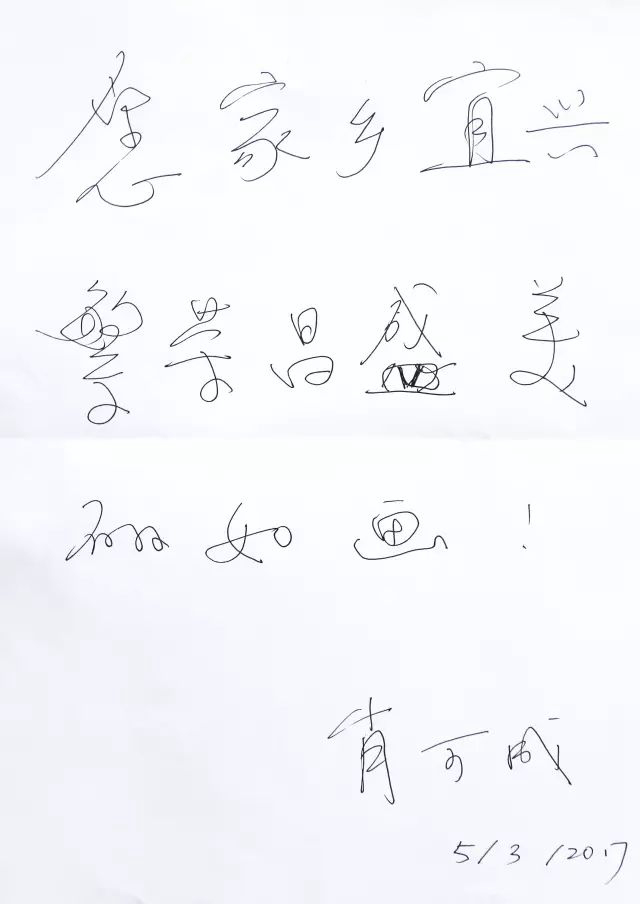 愿家乡宜兴
繁荣昌盛美
丽如画!
肖可成
5/3/2017